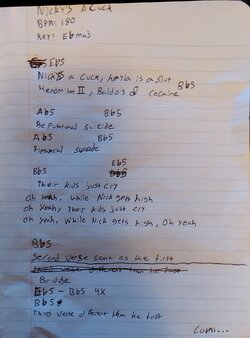 Nicky's A Cuck
BPM: 180
Key: Ebmaj
Eb5
Nick's a cuck, Kayla is a slut
Bb5
Hedonism II, Baldo's of cocaine
Ab5 Bb5
Reputational suicide
Ab5 Bb5
Financial suicide
Eb5
Bb5
Their kids just cry
Oh yeah, while Nick gets high
Oh yeah, Their kids just cry
Oh yeah, while Nick gets high, Oh yeah
Bb5
Second verse same as the first
Third verse different than the first
Bridge
Eb5 - Bb5 4X
Bb5
Third verse different than the first
Cont...